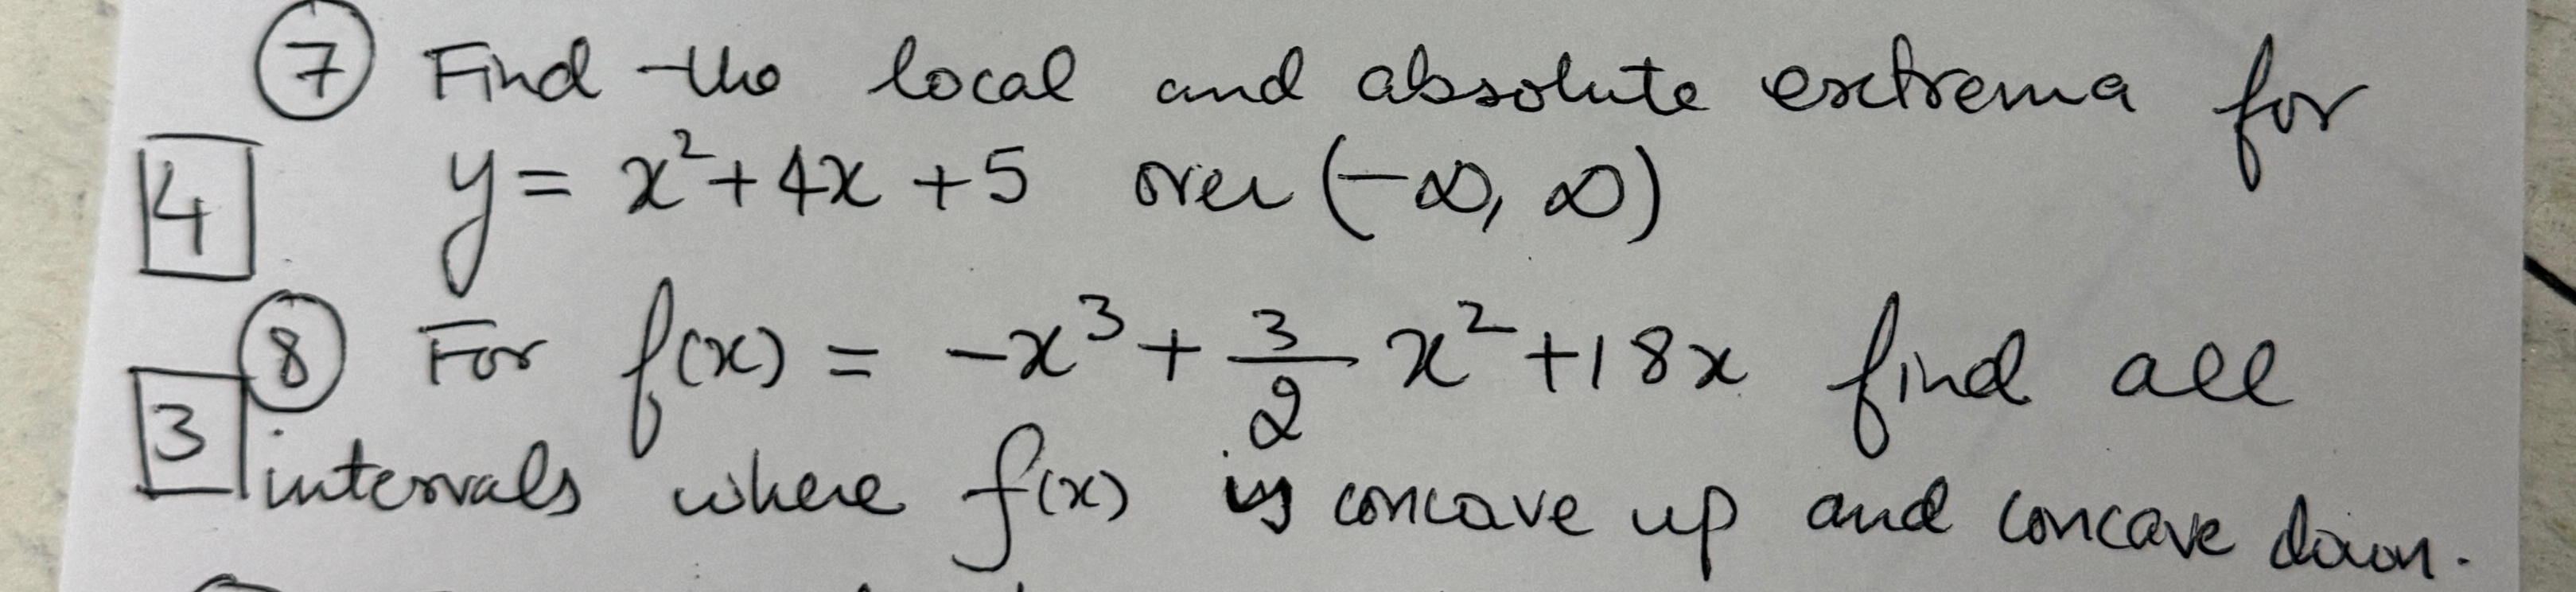 ⑦ Find the local and absolute extrema for
4 y = x² + 4x + 5 over (-∞, ∞)
⑧ For f(x) = -x³ + 3/2 x² + 18x find all
3 intervals where f(x) is concave up and concave down.